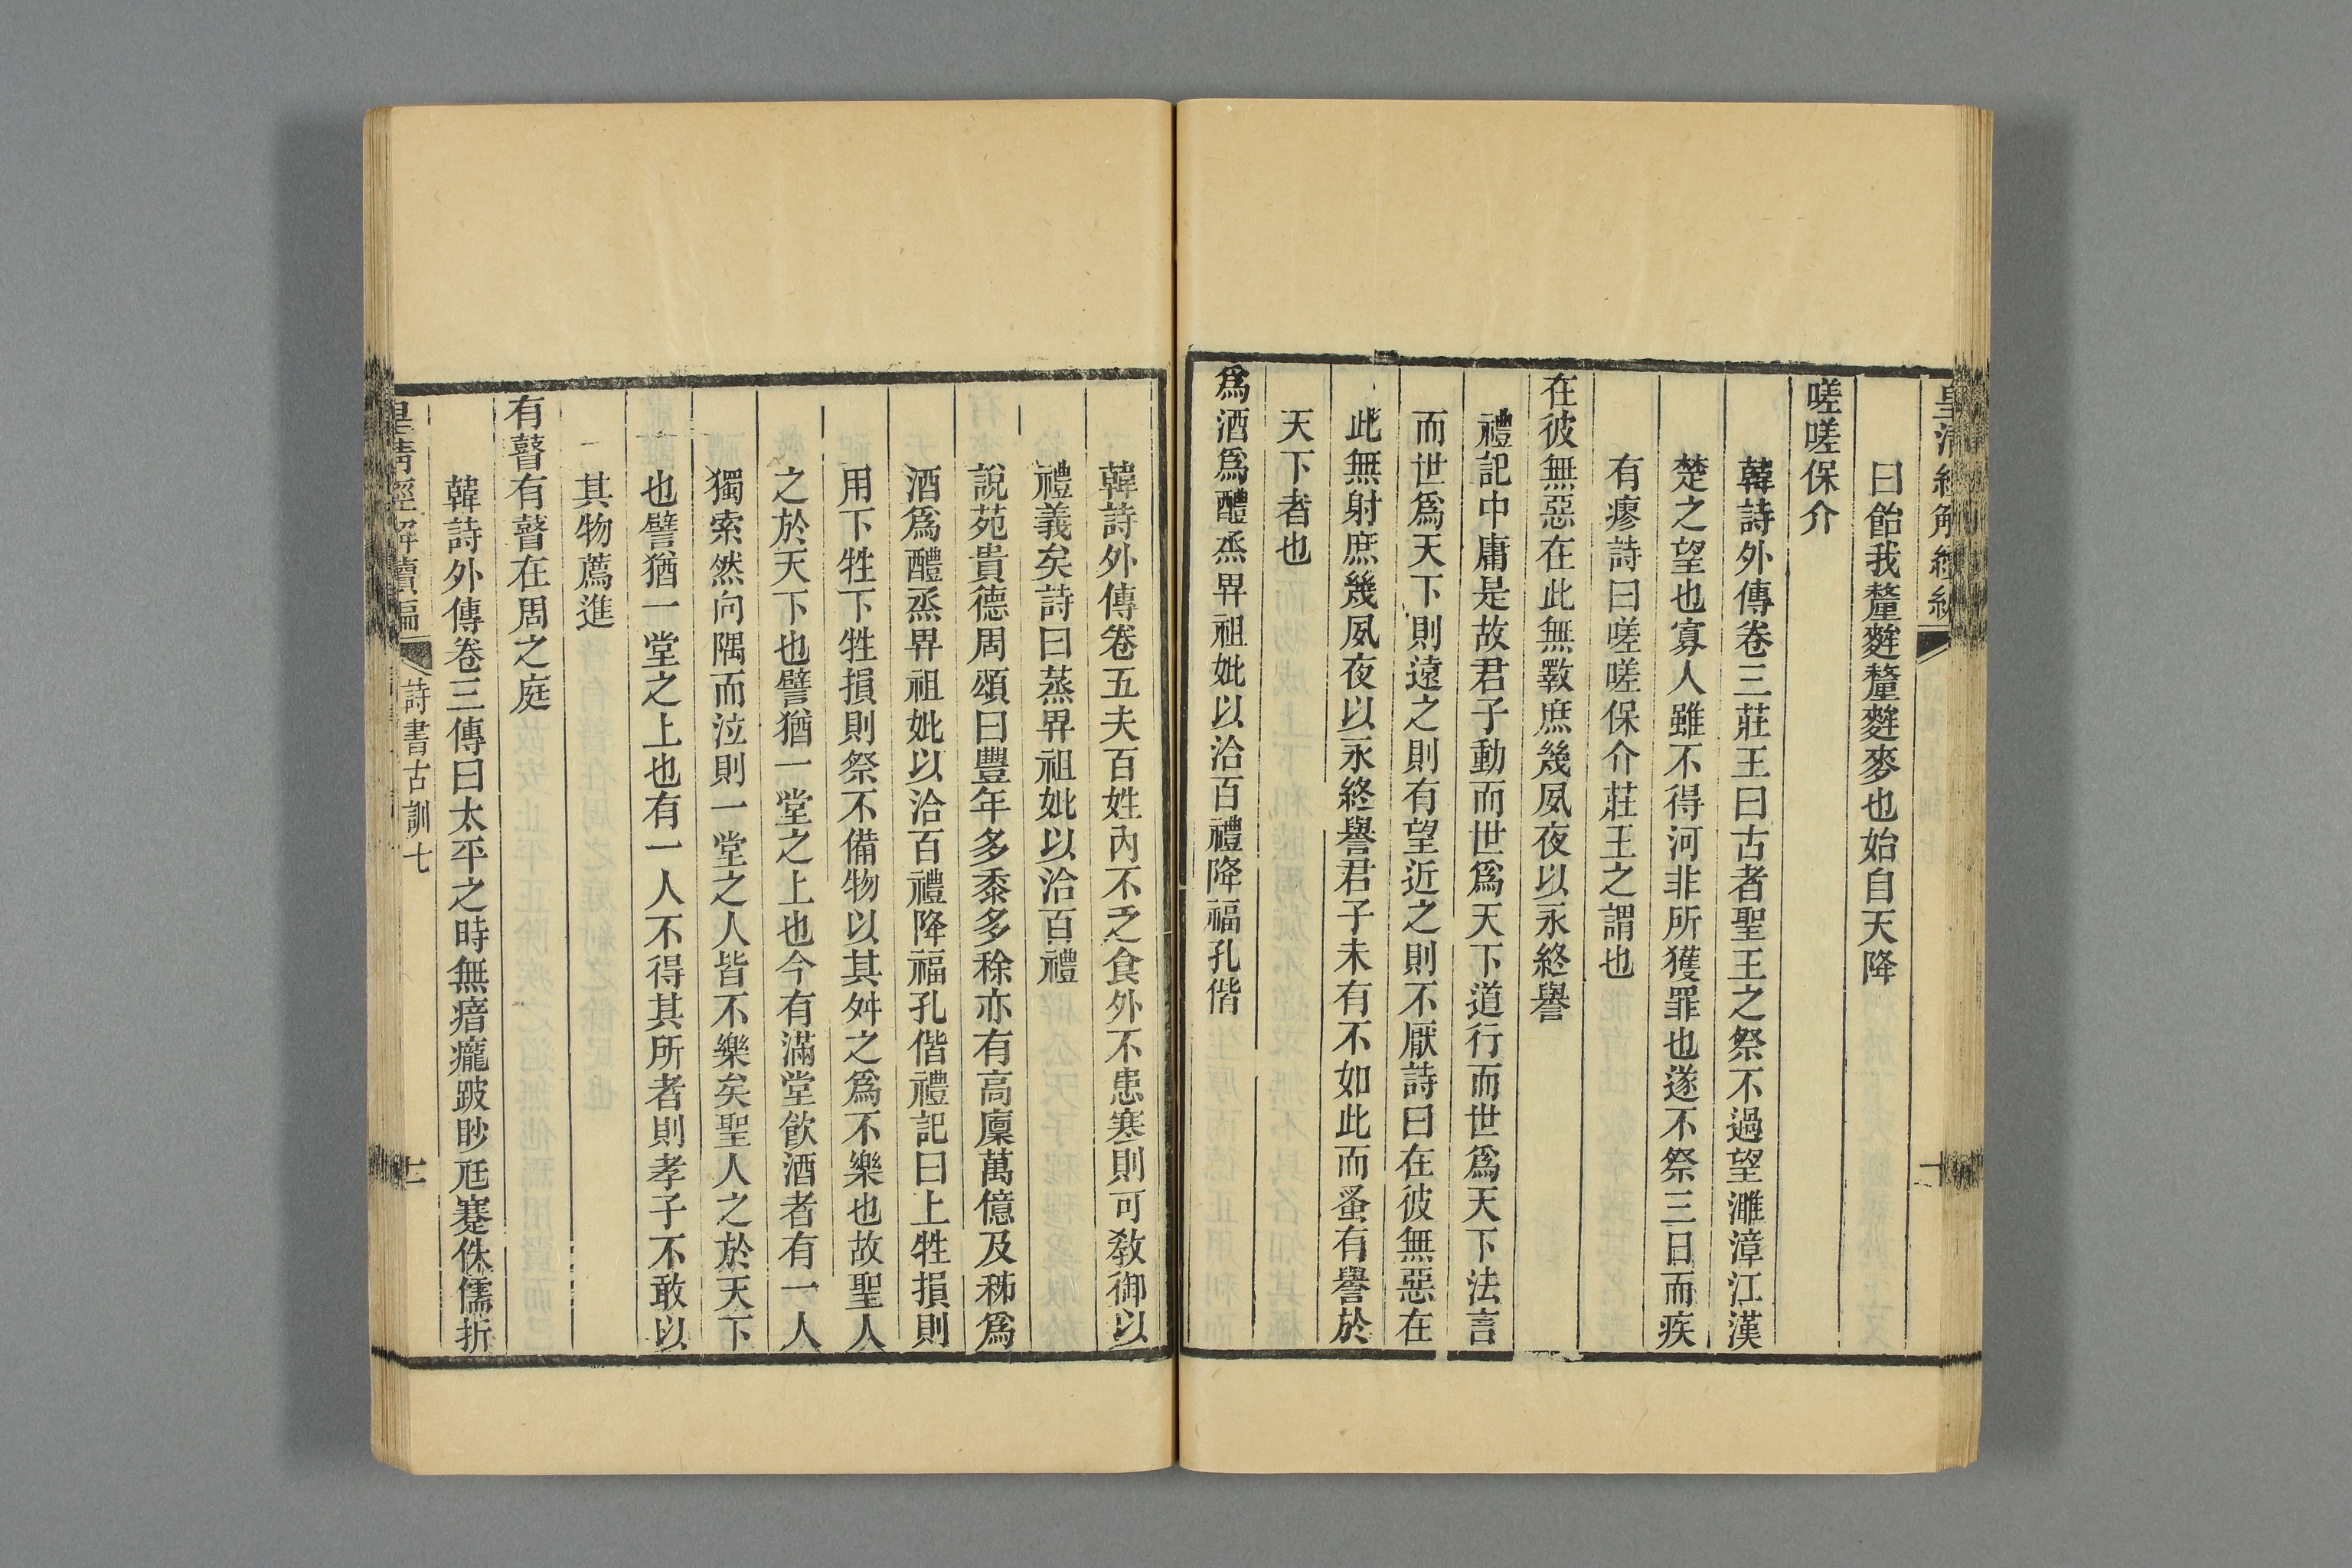 曰飴我釐麰釐麰麥也始自天降
嗟嗟保介
韓詩外傳卷三莊王曰古者聖王之祭不過望濉漳江漢
楚之望也寡人雖不得河非所獲罪也遂不祭三日而疾
有瘳詩曰嗟嗟保介莊王之謂也
在彼無惡在此無斁庶幾夙夜以永終譽
禮記中庸是故君子動而世爲天下道行而世爲天下法言
而世爲天下則遠之則有望近之則不厭詩曰在彼無惡在
此無射庶幾夙夜以永終譽君子未有不如此而蚤有譽於
天下者也
爲酒爲醴烝畀祖妣以洽百禮降福孔偕
韓詩外傳卷五夫百姓內不乏食外不患寒則可敎御以
禮義矣詩曰蒸畀祖妣以洽百禮
說苑貴德周頌曰豐年多黍多稌亦有高廩萬億及秭爲
酒爲醴烝畀祖妣以洽百禮降福孔偕禮記曰上牲損則
用下牲下牲損則祭不備物以其舛之爲不樂也故聖人
之於天下也譬猶一堂之上也今有滿堂飮酒者有一人
獨索然向隅而泣則一堂之人皆不樂矣聖人之於天下
也譬猶一堂之上也有一人不得其所者則孝子不敢以
其物薦進
有瞽有瞽在周之庭
韓詩外傳卷三傳曰太平之時無瘖㿖跛眇尪蹇侏儒折
皇淸經解續編
詩書古訓七